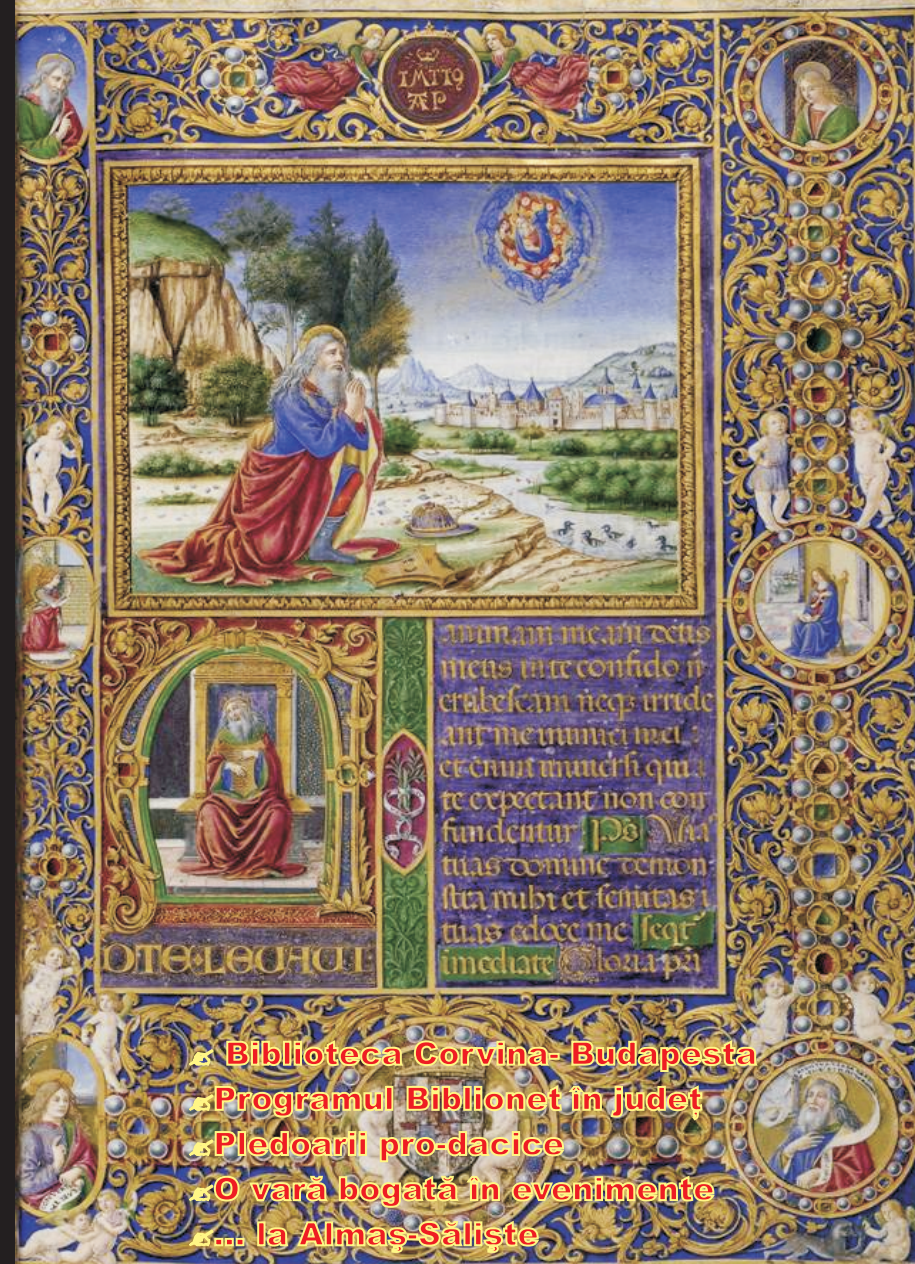 DTE·LEVAVI
animam meam deus
meus in te confido n̄
erubescam neqꝫ irride
ant me inimici mei :
et enim universi qui
te expectant non con
fundentur Ps Via
tuas domine demon
stra mihi et semitas
tuas edoce me seqt
imediate Gloria pri
Biblioteca Corvina- Budapesta
Programul Biblionet în județ
Pledoarii pro-dacice
O vară bogată în evenimente
... la Almaş-Sălişte